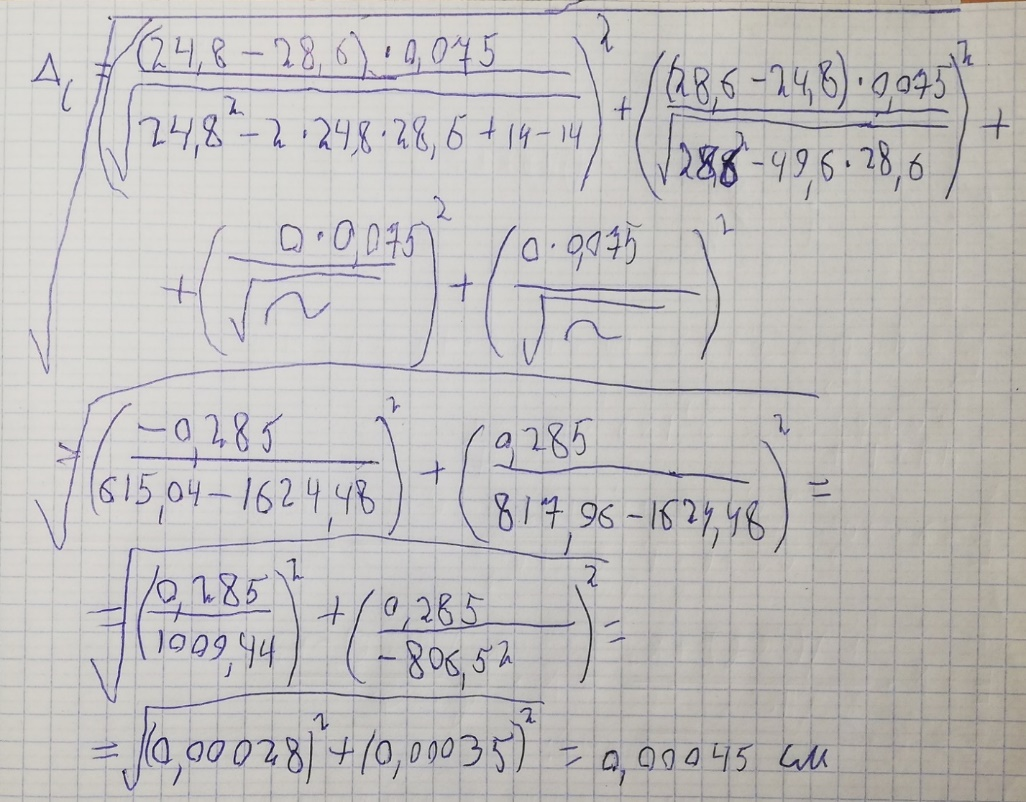 Δ_l = √(((24,8 − 28,6) · 0,075) / √(24,8² − 2 · 24,8 · 28,6 + 14 − 14))² + (((28,6 − 24,8) · 0,075) / √(28,6² − 49,6 · 28,6))² +
+ ((0 · 0,075) / √~)² + ((0 · 0,075) / √~)²
= √((−0,285) / (615,04 − 1624,48))² + (0,285 / (817,96 − 1624,48))² =
= √(0,285 / 1009,44)² + (0,285 / −806,52)² =
= √(0,00028)² + (0,00035)² = 0,00045 см